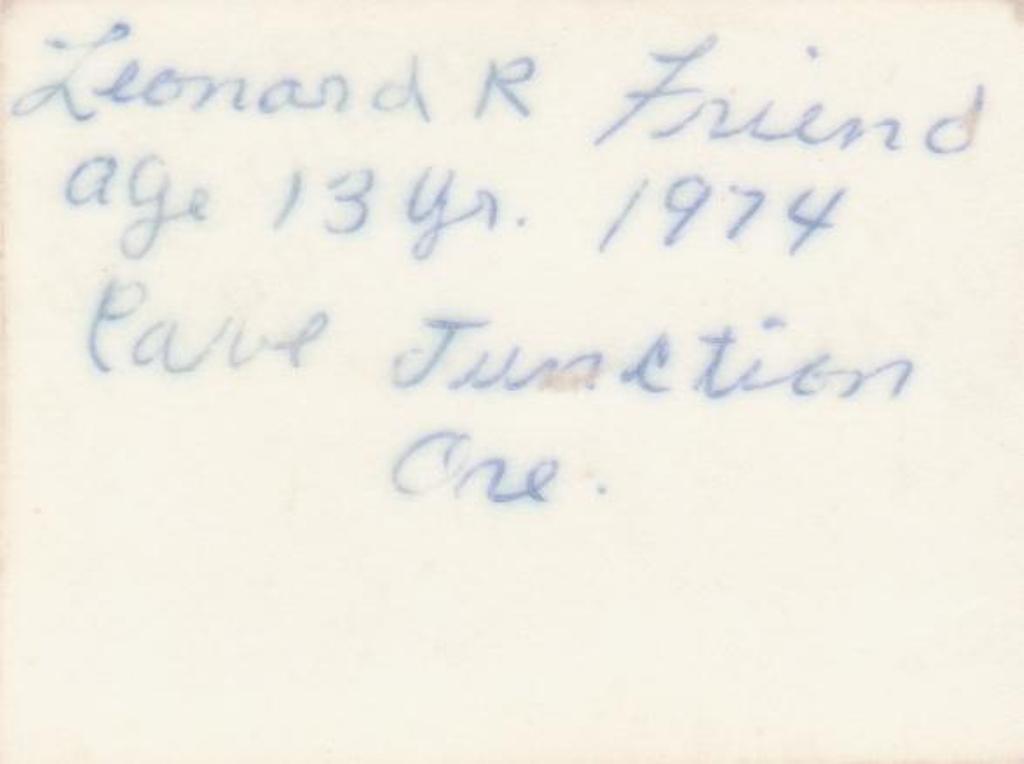 Leonard R Friend
age 13 yr. 1974
Cave Junction
Ore.